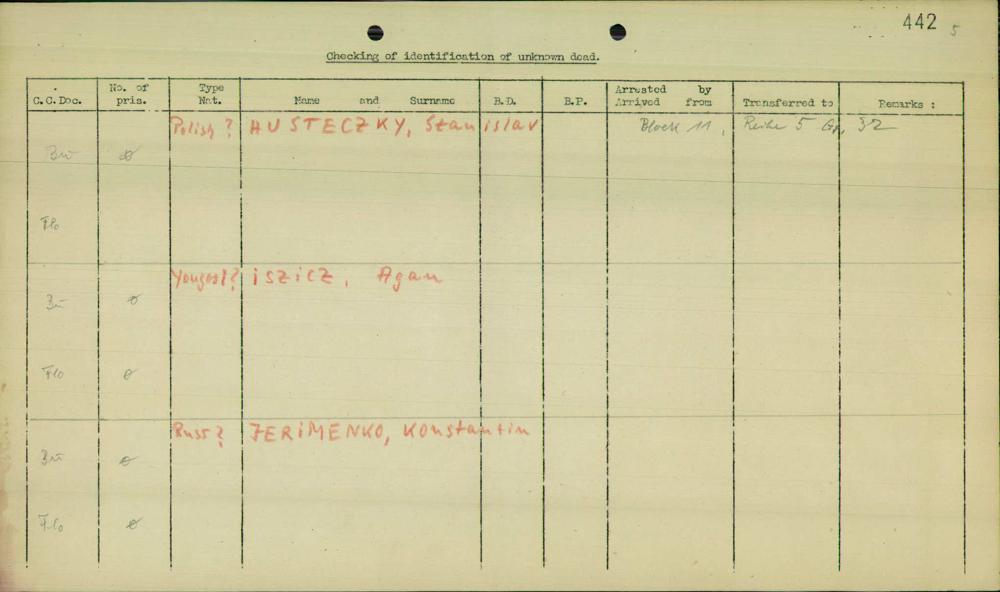 442 5
Checking of identification of unknown dead.
C.C.Doc. No. of pris. Type Nat. Name and Surname B.D. B.P. Arrested by Arrived from Transferred to Remarks :
Polish ? HUSTECZKY, Stanislav Block 11, Reihe 5 Gr, 32
Bu ø
Flo
Yougosl? ISZICZ, Agan
Bu ø
Flo ø
Russ? JERIMENKO, Konstantin
Bu ø
Flo ø